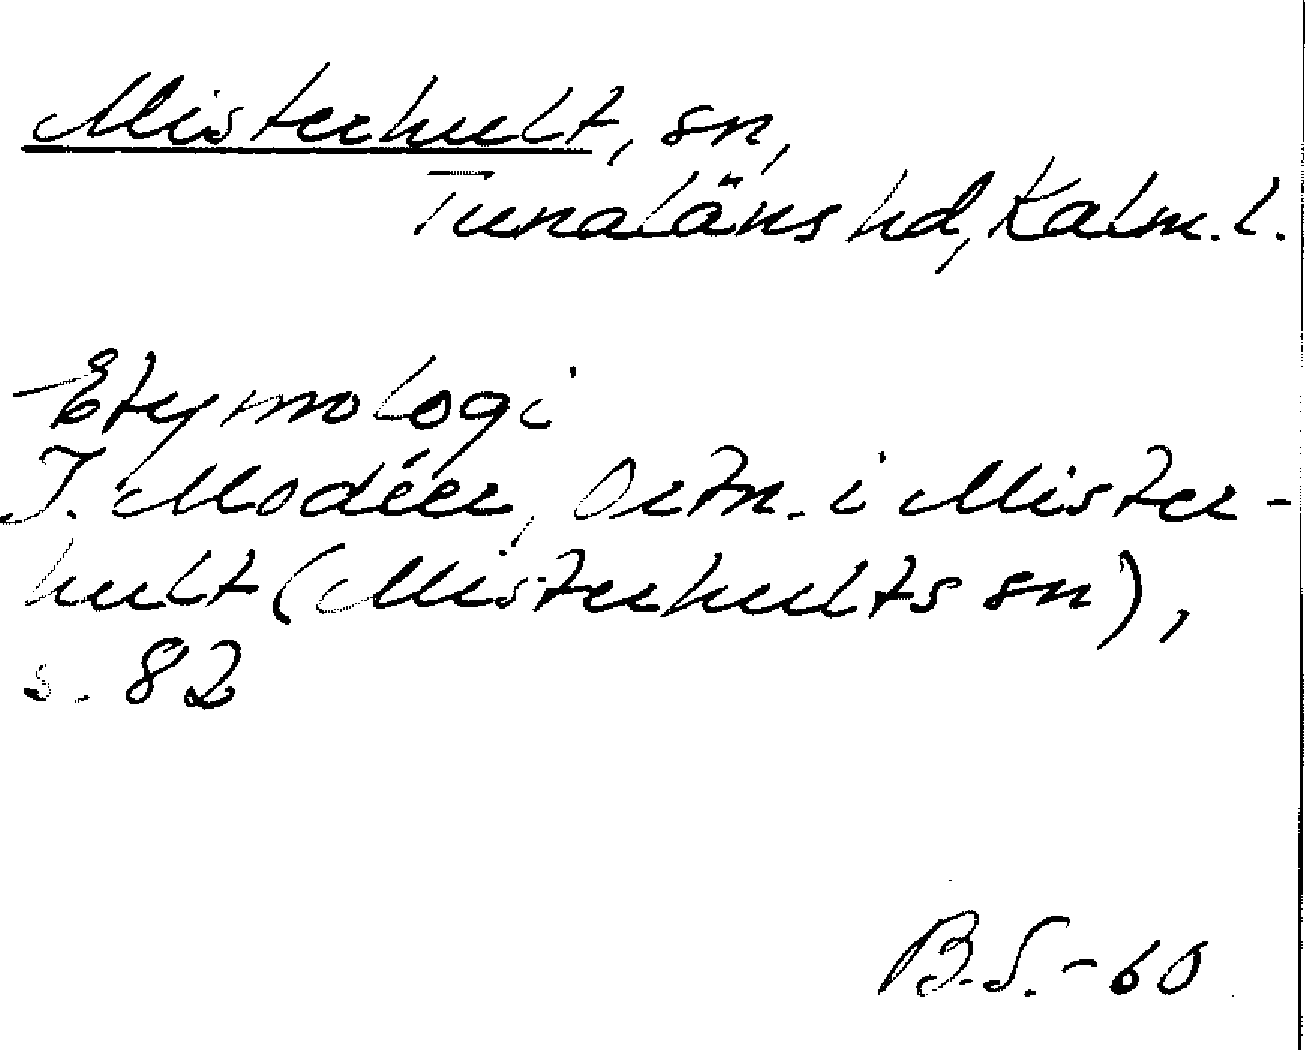 Misterhult, sn,
Tunaläns hd, Kalm. l.
Etymologi
I. Modéer, Ortn. i Mister-
hult (Misterhults sn),
s. 82
B.S. -60